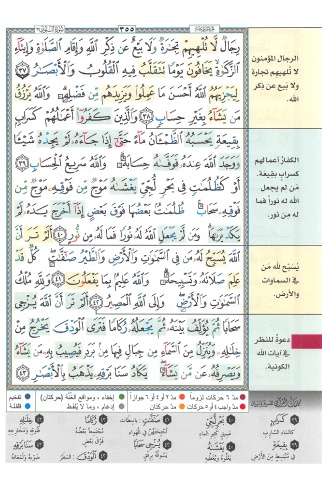 ٣٥٥
رِجَالٌ لَّا تُلْهِيهِمْ تِجَٰرَةٌ وَلَا بَيْعٌ عَن ذِكْرِ ٱللَّهِ وَإِقَامِ ٱلصَّلَوٰةِ وَإِيتَآءِ
ٱلزَّكَوٰةِ يَخَافُونَ يَوْمًا تَتَقَلَّبُ فِيهِ ٱلْقُلُوبُ وَٱلْأَبْصَٰرُ ٣٧
لِيَجْزِيَهُمُ ٱللَّهُ أَحْسَنَ مَا عَمِلُوا۟ وَيَزِيدَهُم مِّن فَضْلِهِۦ وَٱللَّهُ يَرْزُقُ
مَن يَشَآءُ بِغَيْرِ حِسَابٍ ٣٨ وَٱلَّذِينَ كَفَرُوٓا۟ أَعْمَٰلُهُمْ كَسَرَابٍۭ
بِقِيعَةٍ يَحْسَبُهُ ٱلظَّمْـَٔانُ مَآءً حَتَّىٰٓ إِذَا جَآءَهُۥ لَمْ يَجِدْهُ شَيْـًٔا
وَوَجَدَ ٱللَّهَ عِندَهُۥ فَوَفَّىٰهُ حِسَابَهُۥ وَٱللَّهُ سَرِيعُ ٱلْحِسَابِ ٣٩
أَوْ كَظُلُمَٰتٍ فِى بَحْرٍ لُّجِّىٍّ يَغْشَىٰهُ مَوْجٌ مِّن فَوْقِهِۦ مَوْجٌ مِّن
فَوْقِهِۦ سَحَابٌ ظُلُمَٰتٌۢ بَعْضُهَا فَوْقَ بَعْضٍ إِذَآ أَخْرَجَ يَدَهُۥ لَمْ
يَكَدْ يَرَىٰهَا وَمَن لَّمْ يَجْعَلِ ٱللَّهُ لَهُۥ نُورًا فَمَا لَهُۥ مِن نُّورٍ ٤٠ أَلَمْ تَرَ أَنَّ
ٱللَّهَ يُسَبِّحُ لَهُۥ مَن فِى ٱلسَّمَٰوَٰتِ وَٱلْأَرْضِ وَٱلطَّيْرُ صَٰٓفَّٰتٍ كُلٌّ قَدْ
عَلِمَ صَلَاتَهُۥ وَتَسْبِيحَهُۥ وَٱللَّهُ عَلِيمٌۢ بِمَا يَفْعَلُونَ ٤١ وَلِلَّهِ مُلْكُ
ٱلسَّمَٰوَٰتِ وَٱلْأَرْضِ وَإِلَى ٱللَّهِ ٱلْمَصِيرُ ٤٢ أَلَمْ تَرَ أَنَّ ٱللَّهَ يُزْجِى
سَحَابًا ثُمَّ يُؤَلِّفُ بَيْنَهُۥ ثُمَّ يَجْعَلُهُۥ رُكَامًا فَتَرَى ٱلْوَدْقَ يَخْرُجُ مِنْ
خِلَٰلِهِۦ وَيُنَزِّلُ مِنَ ٱلسَّمَآءِ مِن جِبَالٍ فِيهَا مِنۢ بَرَدٍ فَيُصِيبُ بِهِۦ مَن يَشَآءُ
وَيَصْرِفُهُۥ عَن مَّن يَشَآءُ يَكَادُ سَنَا بَرْقِهِۦ يَذْهَبُ بِٱلْأَبْصَٰرِ ٤٣
الرجال المؤمنون
لا تُلهيهم تجارة
ولا بيع عن ذكر
الله.
الكفار أعمالهم
كسراب بقيعة.
مَن لم يجعل
الله له نوراً فما
له مِن نور.
يُسَبِّح لله مَن
في السماوات
والأرض.
دعوةٌ للنظر
في آيات الله
الكونية.
مدّ ٦ حركات لزوماً
مدّ ٢ أو ٤ أو ٦ جوازاً
إخفاء، ومواقع الغُنَّة (حركتان)
تفخيم
مدّ واجب ٤ أو ٥ حركات
مدّ حركتان
إدغام، وما لا يُلفَظ
قلقلة